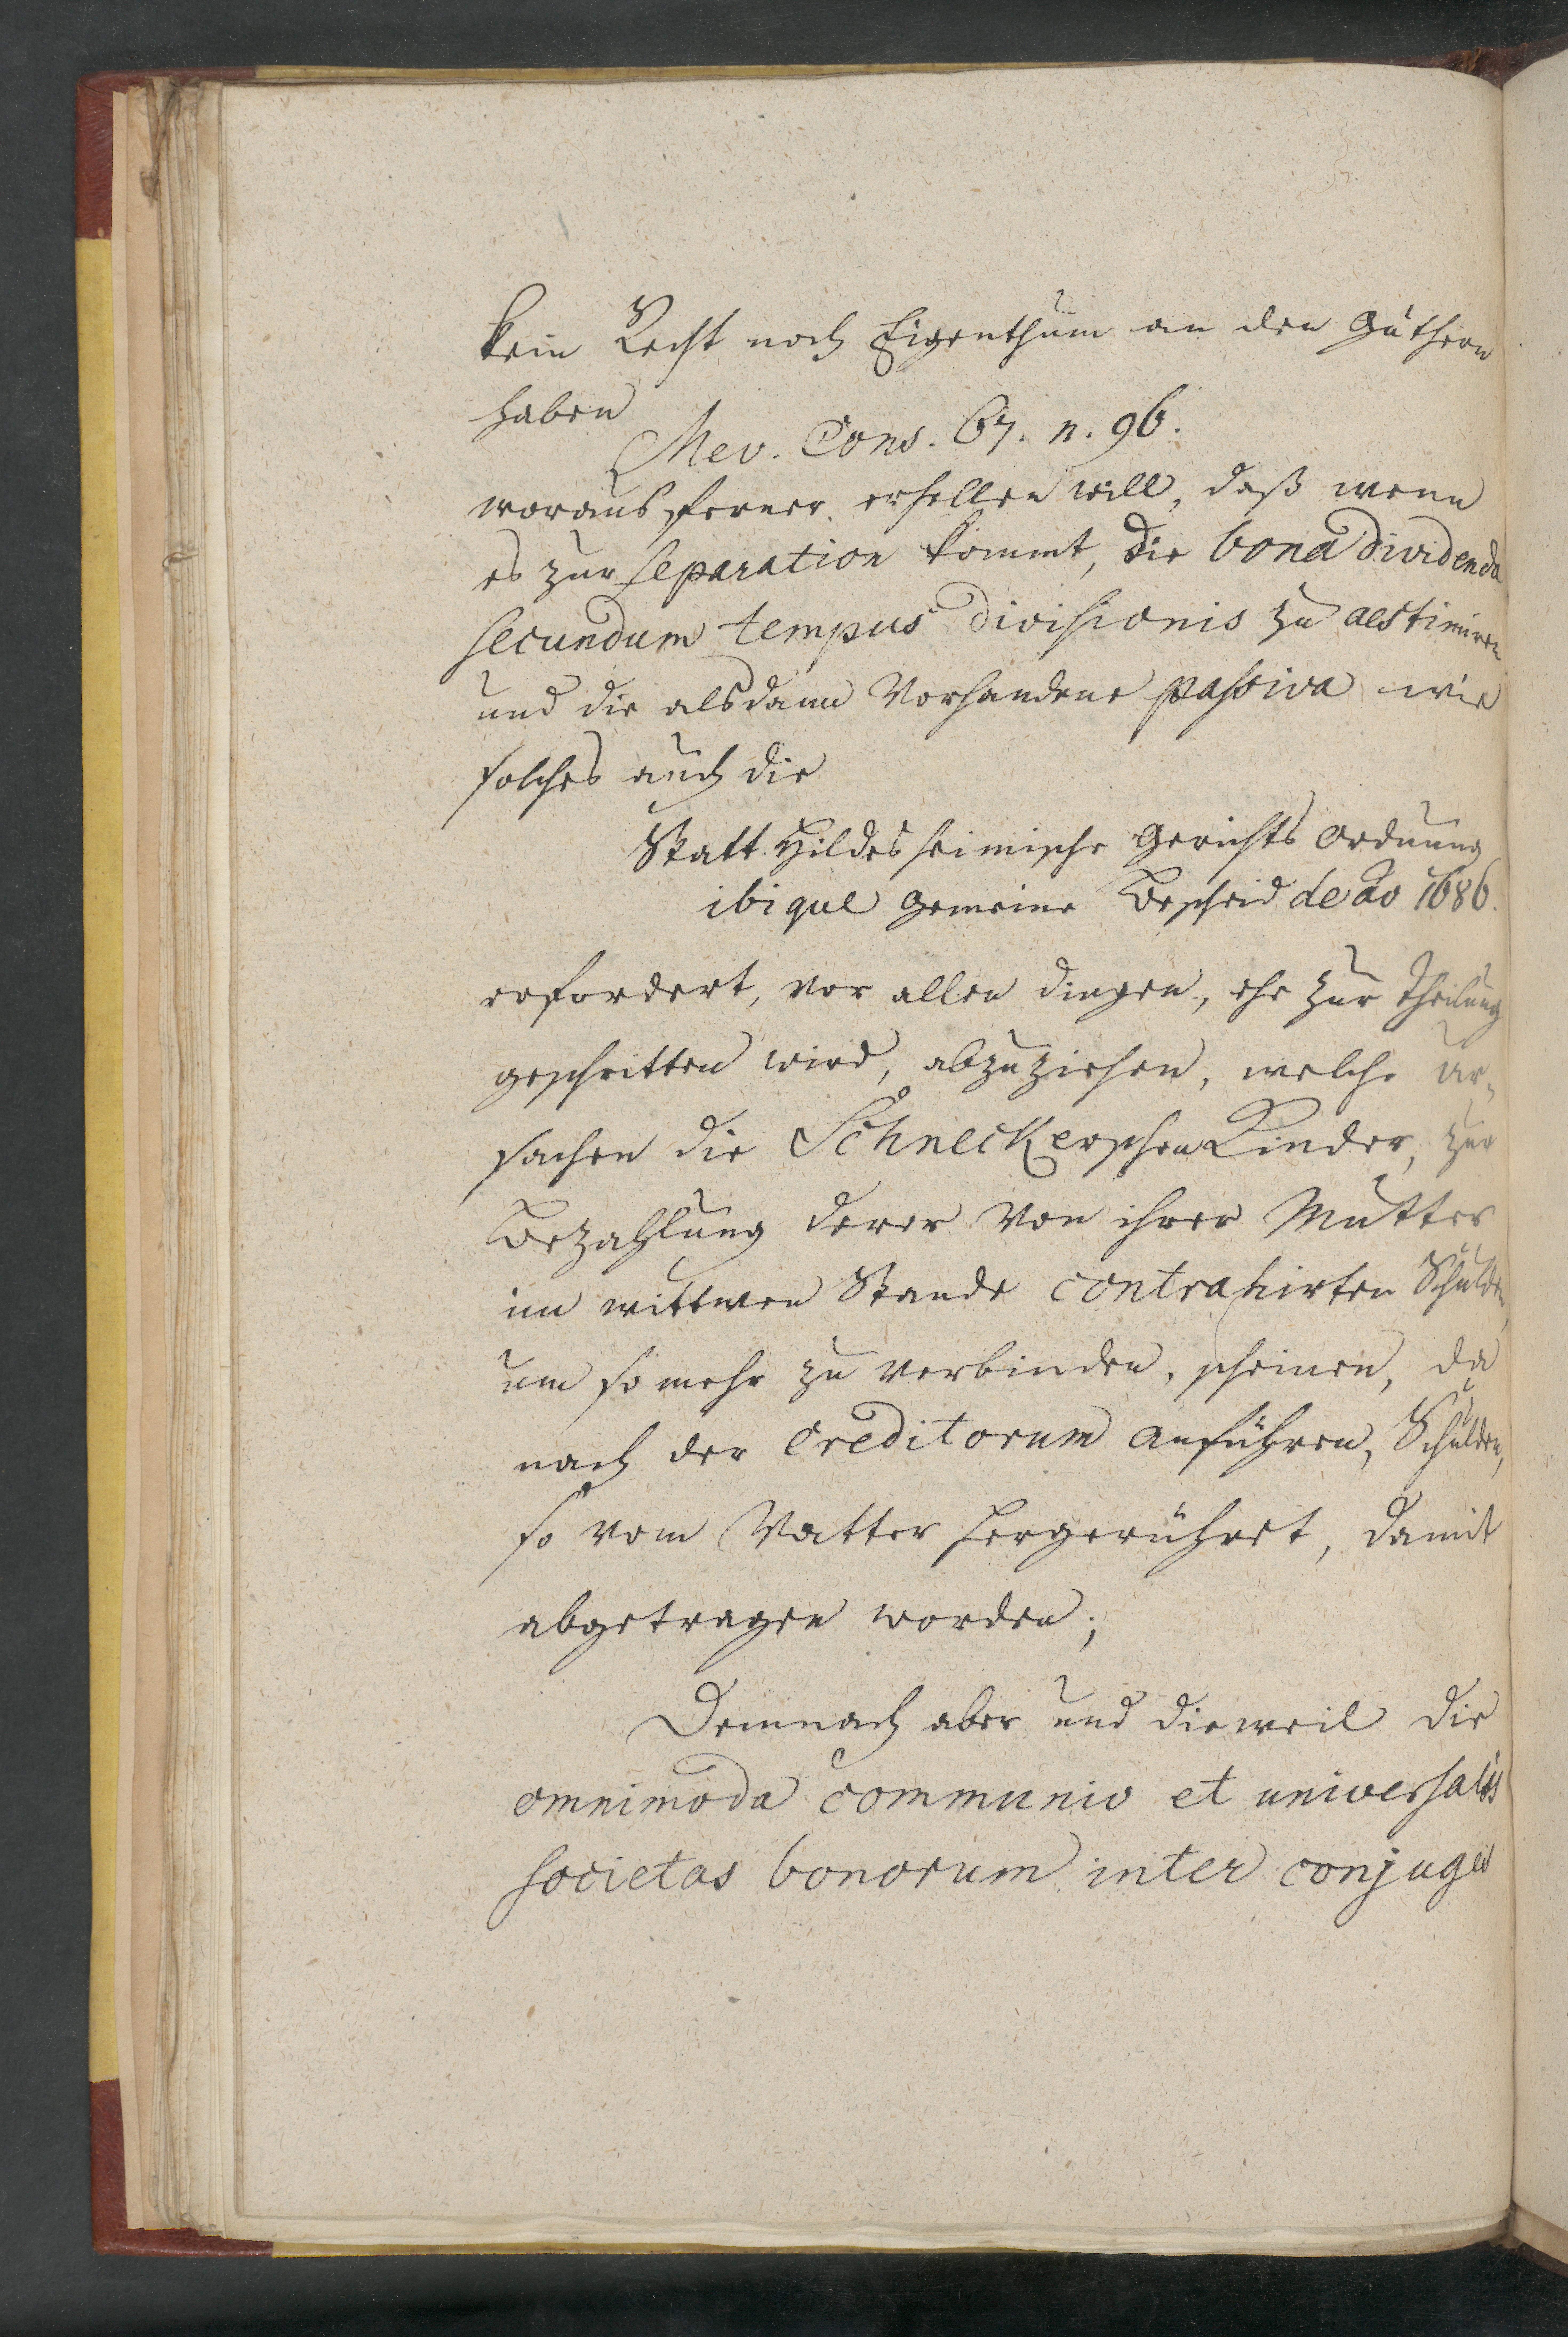 kein Recht noch Eigenthum an den Güthern
haben
Mev. Cons. 67. n. 96.
woraus ferner erhellen will, daß wenn
es zur separation kommt, die bona dividenda
secundum tempus divisionis zu aestimiren
und die alsdann vorhandene passiva wie
solches auch die
Statt Hildesheimische Gerichts Ordnung
ibique gemeine Bescheid de ao 1686.
erfordert, vor allen dingen, ehe zur Theilung
geschritten wird, abzuziehen, welche Ur-
sachen die Schneckerschen Kinder, zur
Bezahlung derer von ihrer Mutter
im wittwen Stande contrahirten Schulden
um so mehr zu verbinden, scheinen, da
nach der Creditorum anführen, Schulden,
so vom Vatter hergerühret, damit
abgetragen worden;
Demnach aber und dieweil die
omnimoda communio et universalis
societas bonorum inter conjuges